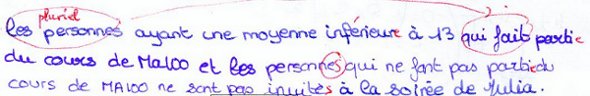 pluriel
les personnes ayant une moyenne inférieure à 13 qui fait partie
du cours de Maloo et les personnes qui ne font pas partie du
cours de Maloo ne sont pas invités à la soirée de Julia.